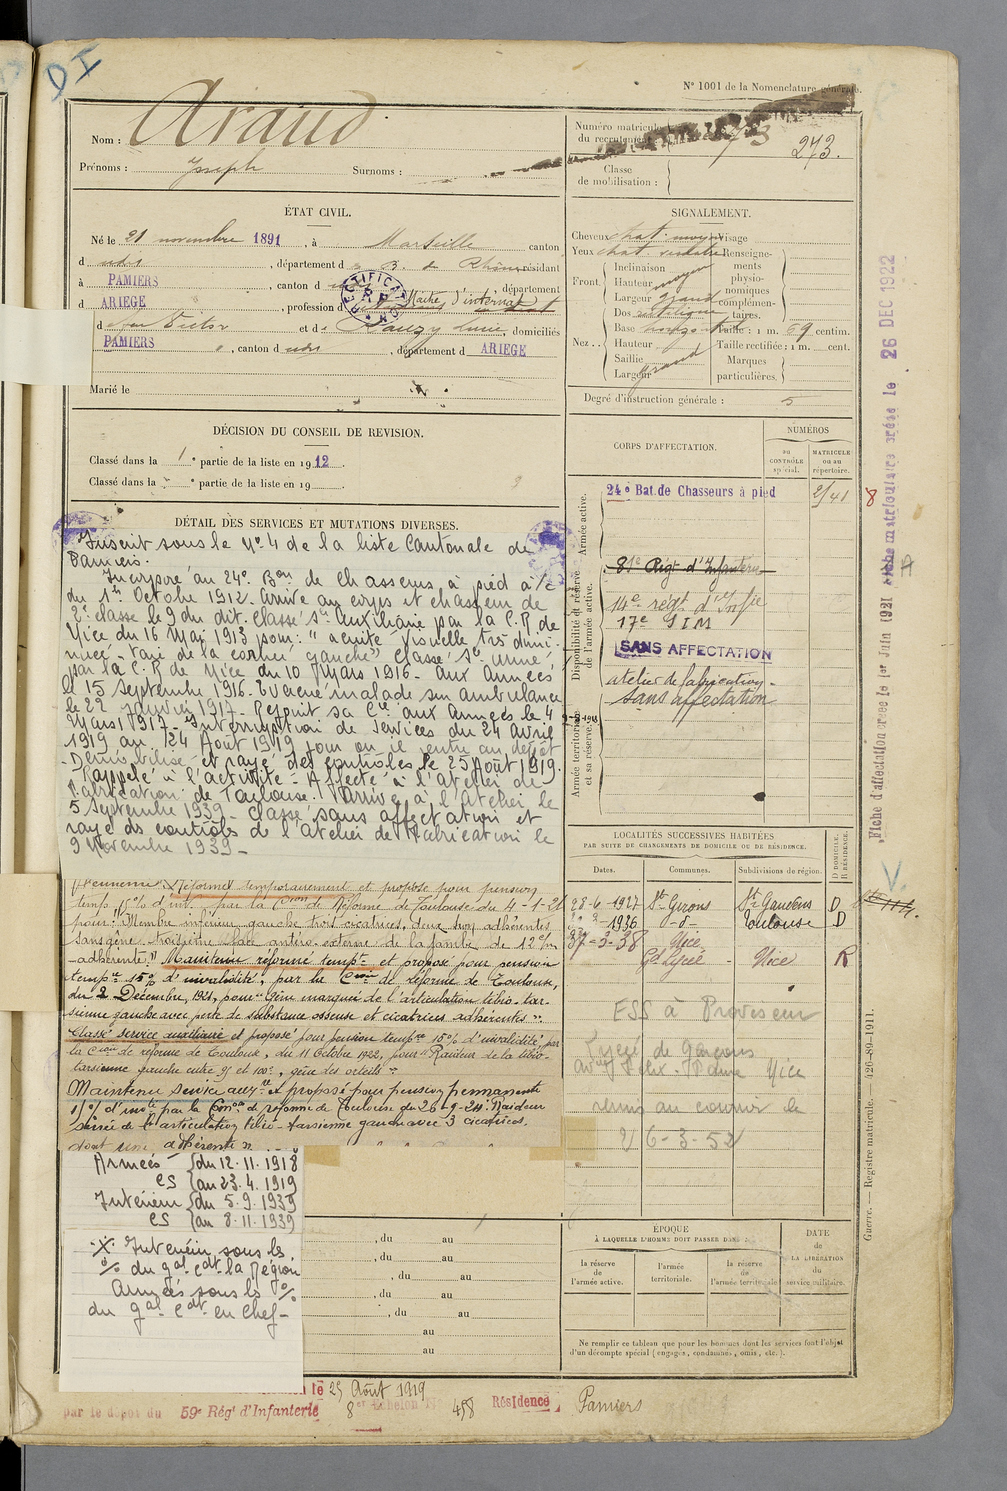 DI
N° 1001 de la Nomenclature générale.
Nom : Araud
Prénoms : Joseph Surnoms :
Numéro matricule du recrutement : 273.
Classe de mobilisation :
ÉTAT CIVIL.
Né le 21 novembre 1891, à Marseille canton
d udit, département d B. d Rhône, résidant
à PAMIERS, canton d udit, département
d ARIEGE, profession d Maître d'internat
RECTIFICATION
d feu Victor et de Pauzy Lucie, domiciliés
PAMIERS, canton d udit, département d ARIEGE
Marié le
SIGNALEMENT.
Cheveux chat. moyen Visage
Yeux chat. verdatre Renseignements physionomiques complémentaires.
Front. Inclinaison moyen
Hauteur
Largeur grand
Nez.. Dos rectiligne
Base horizontale Taille : 1 m. 69 centim.
Hauteur Taille rectifiée : 1 m. cent.
Saillie grand Marques
Largeur particulières.
Degré d'instruction générale : 5
DÉCISION DU CONSEIL DE REVISION.
Classé dans la 1e partie de la liste en 1912.
Classé dans la e partie de la liste en 19
CORPS D'AFFECTATION.
NUMÉROS
au CONTRÔLE spécial.
MATRICULE ou au répertoire.
Armée active.
24e Bat. de Chasseurs à pied
Disponibilité et réserve de l'armée active.
81e Régt d'Infanterie
14e régt d'Infie
17e S I M
SANS AFFECTATION
atelier de fabrication -
sans affectation
Armée territoriale et sa réserve.
DÉTAIL DES SERVICES ET MUTATIONS DIVERSES.
Inscrit sous le N° 4 de la liste Cantonale de
Pamiers.
Incorporé au 24e Bon de chasseurs à pied a/c
du 1er Octobre 1912. Arrivé au corps et chasseur de
2e classe le 9 du dit. Classé Sce Auxiliaire par la C.R de
Nice du 16 Mai 1913 pour: " acuité visuelle très dimi-
nuée - Taie de la cornée gauche" Classé Sce armé,
par la C.R de Nice du 10 Mars 1916. Aux Armées
le 15 Septembre 1916. Evacué malade sur ambulance
le 22 Janvier 1917. Rejoint sa Cie aux Armées le 4
Mars 1917. Interruption de services du 24 avril
1919 au 24 Août 1919 jour où il rentre au dépôt
- Démobilisé et rayé des contrôles le 25 Août 1919.
Rappelé à l'activité - Affecté à l'atelier de
Fabrication de Toulouse. Arrivé à l'atelier le
5 Septembre 1939 - Classé sans affectation et
rayé ds contrôls de l'atelier de Fabrication le
9 Novembre 1939 -
Réformé temporairement et proposé pour pension
temp. 15% d'inv. par la Cion de Réforme de Toulouse du 4-1-21
pour: "Membre inférieur gauche trois cicatrices, deux non adhérentes
sans gêne, troisième face antéro-externe de la jambe de 12 c/m
- adhérente." Maintenu réformé tempre et proposé pour pension
tempre 15% d'invalidité, par la Cion de réforme de Toulouse,
du 2 Décembre, 1921, pour "gêne marquée de l'articulation tibio-tar-
sienne gauche avec perte de substance osseuse et cicatrices adhérentes".
Classé service auxiliaire et proposé pour pension tempre 15% d'invalidité, par
la Cion de réforme de Toulouse, du 11 Octobre 1922, pour "Raideur de la tibio-
tarsienne gauche entre 95 et 100°, gêne des orteils"
Maintenu service auxre et proposé pour pension permanente
15% d'invté par la Cmon de réforme de Toulouse du 26-9-24: Raideur
serrée de l'articulation tibio-tarsienne gauche avec 3 cicatrices.
dont une adhérente
Armées { du 12.11.1918
es { au 23.4.1919
Intérieur { du 5.9.1939
es { au 8.11.1939
Intérieur sous les
% du gal cdt la Région
Armées sous ls %
du gal cdt en Chef -
LOCALITÉS SUCCESSIVES HABITÉES
PAR SUITE DE CHANGEMENTS DE DOMICILE OU DE RÉSIDENCE.
Dates. Communes. Subdivisions de région. D DOMICILE. R RÉSIDENCE.
28-6-1927 St Girons St Gaudens D
1936 -d- Toulouse D
-3-38 Nice
Gd Lycée - Nice R
ESS à Proviseur
Lycée de Garçons
avue Félix-Faure Nice
revenu au courrier le
6-3-52
ÉPOQUE
À LAQUELLE L'HOMME DOIT PASSER DANS
la réserve de l'armée active.
l'armée territoriale.
la réserve de l'armée territoriale
DATE de LA LIBÉRATION du service militaire.
Ne remplir ce tableau que pour les hommes dont les services font l'objet
d'un décompte spécial (engagés, condamnés, omis, etc.).
, du au
, du au
, du au
, du au
, du au
au
au
le 25 Août 1919
par le dépôt du 59e Régt d'Infanterie 8e Echelon 458 Résidence Pamiers
Fiche d'affectation créée le 1er Juin 1921
Fiche matriculaire créée le 26 DEC 1922
8
A
V.
Guerre. — Registre matricule. — 426-89-1911.